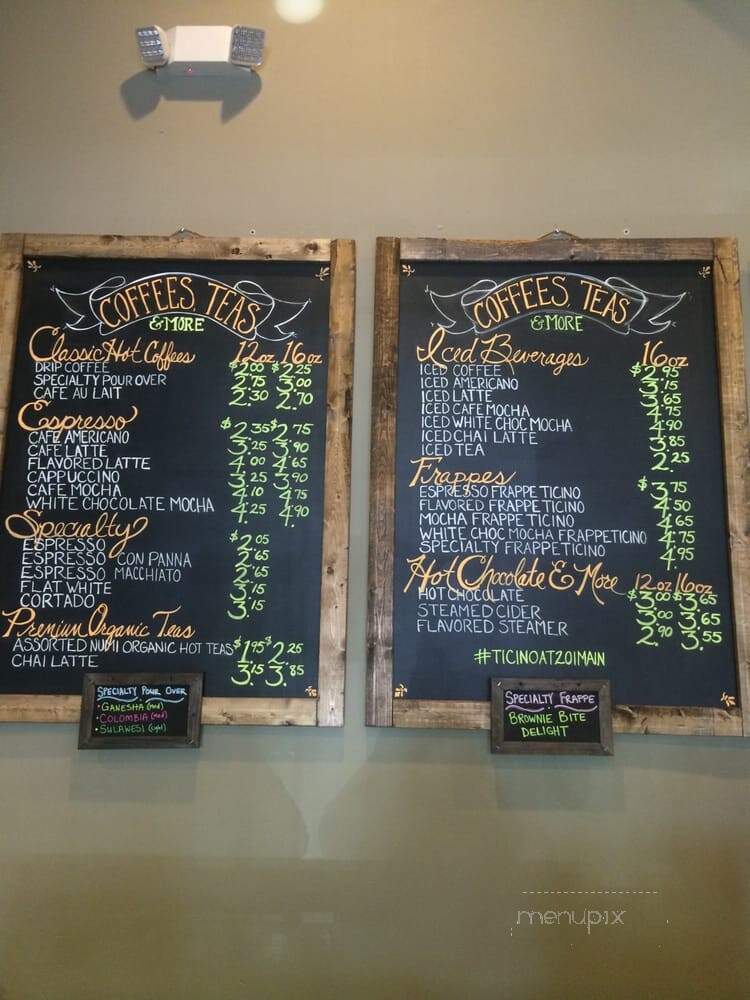 COFFEES, TEAS
& MORE
Classic Hot Coffees 12oz 16oz
DRIP COFFEE $2.00 $2.25
SPECIALTY POUR OVER 2.75 3.00
CAFE AU LAIT 2.30 2.70
Espresso
CAFE AMERICANO $2.35 $2.75
CAFE LATTE 3.25 3.90
FLAVORED LATTE 4.00 4.65
CAPPUCCINO 3.25 3.90
CAFE MOCHA 4.10 4.75
WHITE CHOCOLATE MOCHA 4.25 4.90
Specialty
ESPRESSO $2.05
ESPRESSO CON PANNA 2.65
ESPRESSO MACCHIATO 2.65
FLAT WHITE 3.15
CORTADO 3.15
Premium Organic Teas
ASSORTED NUMI ORGANIC HOT TEAS $1.95 $2.25
CHAI LATTE 3.15 3.85
SPECIALTY POUR OVER
• GANESHA (Med)
• COLOMBIA (Med)
• SULAWESI (Light)
COFFEES, TEAS
& MORE
Iced Beverages 16oz
ICED COFFEE $2.95
ICED AMERICANO 3.15
ICED LATTE 3.65
ICED CAFE MOCHA 4.75
ICED WHITE CHOC MOCHA 4.90
ICED CHAI LATTE 3.85
ICED TEA 2.25
Frappes
ESPRESSO FRAPPETICINO $3.75
FLAVORED FRAPPETICINO 4.50
MOCHA FRAPPETICINO 4.65
WHITE CHOC MOCHA FRAPPETICINO 4.75
SPECIALTY FRAPPETICINO 4.95
Hot Chocolate & More 12oz 16oz
HOT CHOCOLATE $3.00 $3.65
STEAMED CIDER 3.00 3.65
FLAVORED STEAMER 2.90 3.55
#TICINOAT201MAIN
SPECIALTY FRAPPE
BROWNIE BITE
DELIGHT
menupix